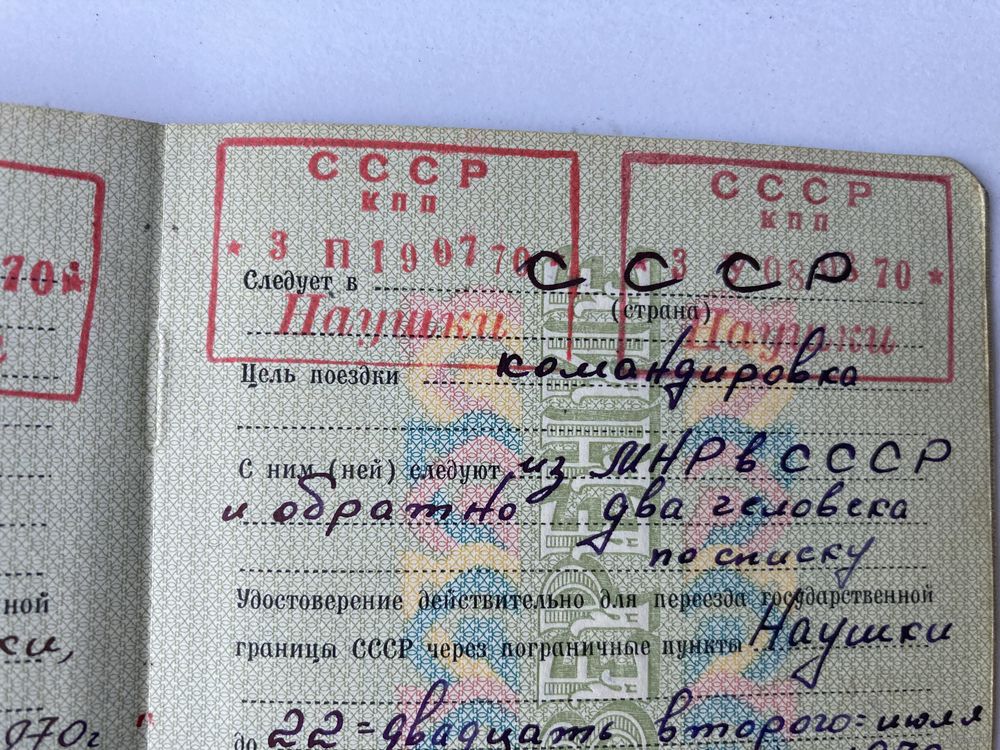 СССР
КПП
* 3 П 19 07 70
Наушки
СССР
КПП
* 3 08 70 *
Наушки
70 *
Следует в СССР
(страна)
Цель поездки командировка
С ним (ней) следуют из МНР в СССР
и обратно два человека
по списку
Удостоверение действительно для переезда государственной
границы СССР через пограничные пункты Наушки
до 22 = двадцать второго = июля
ной
ки,
970г